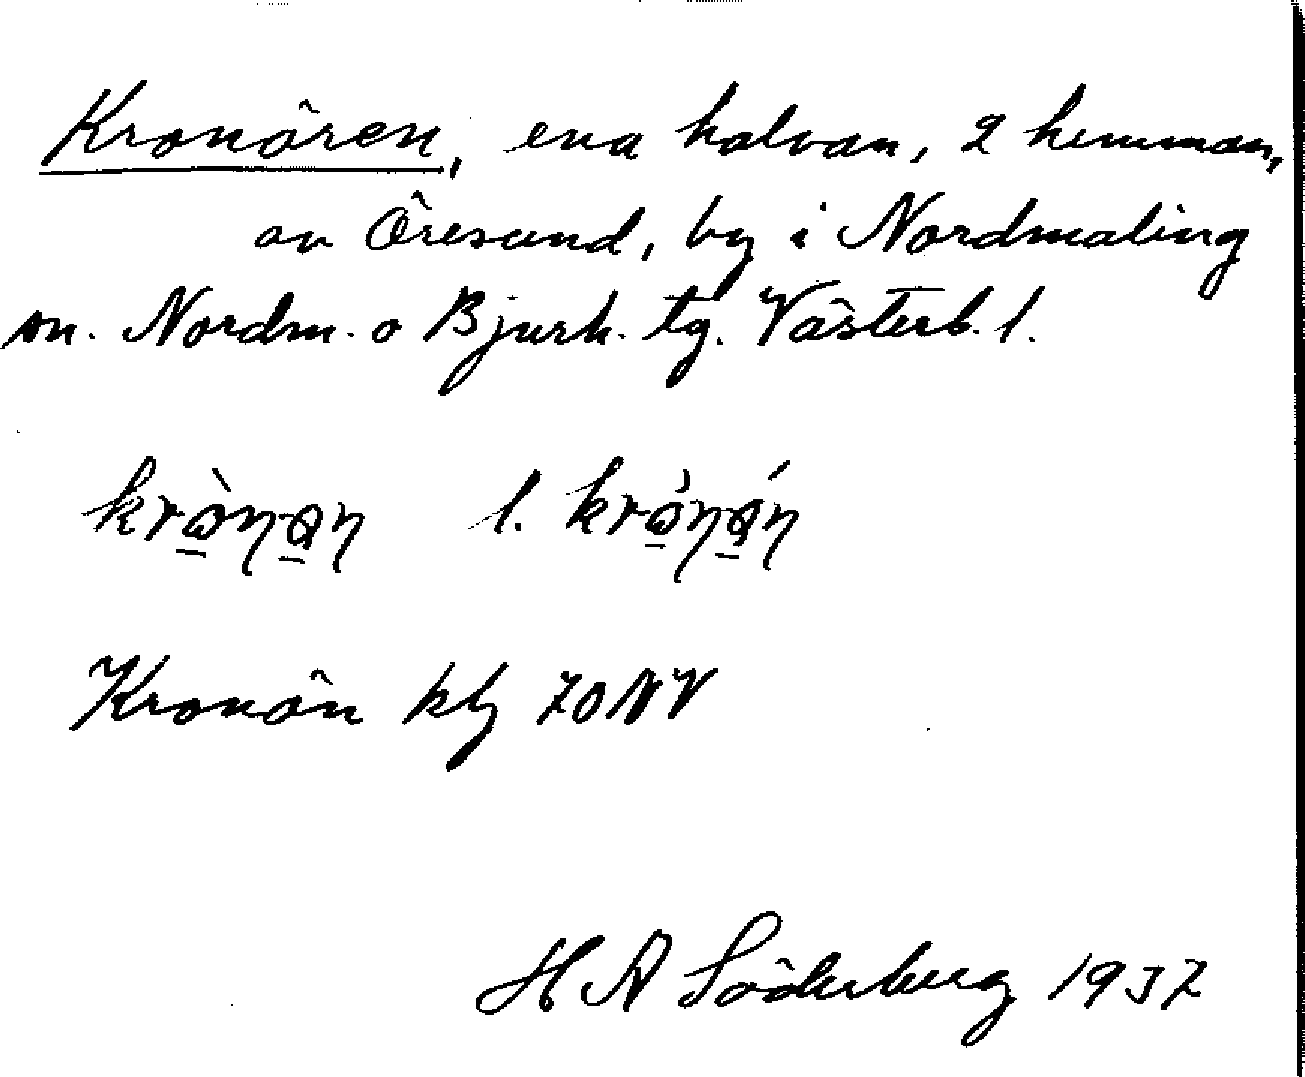 Kronören, ena halvan, 2 hemman,
av Öresund, by i Nordmaling
sn. Nordm. o Bjurh. tg. Västerb. l.
krò̠nø̠n l. krǿ̠nǿ̠n
Kronön kbl 70NV
H A Söderberg 1937